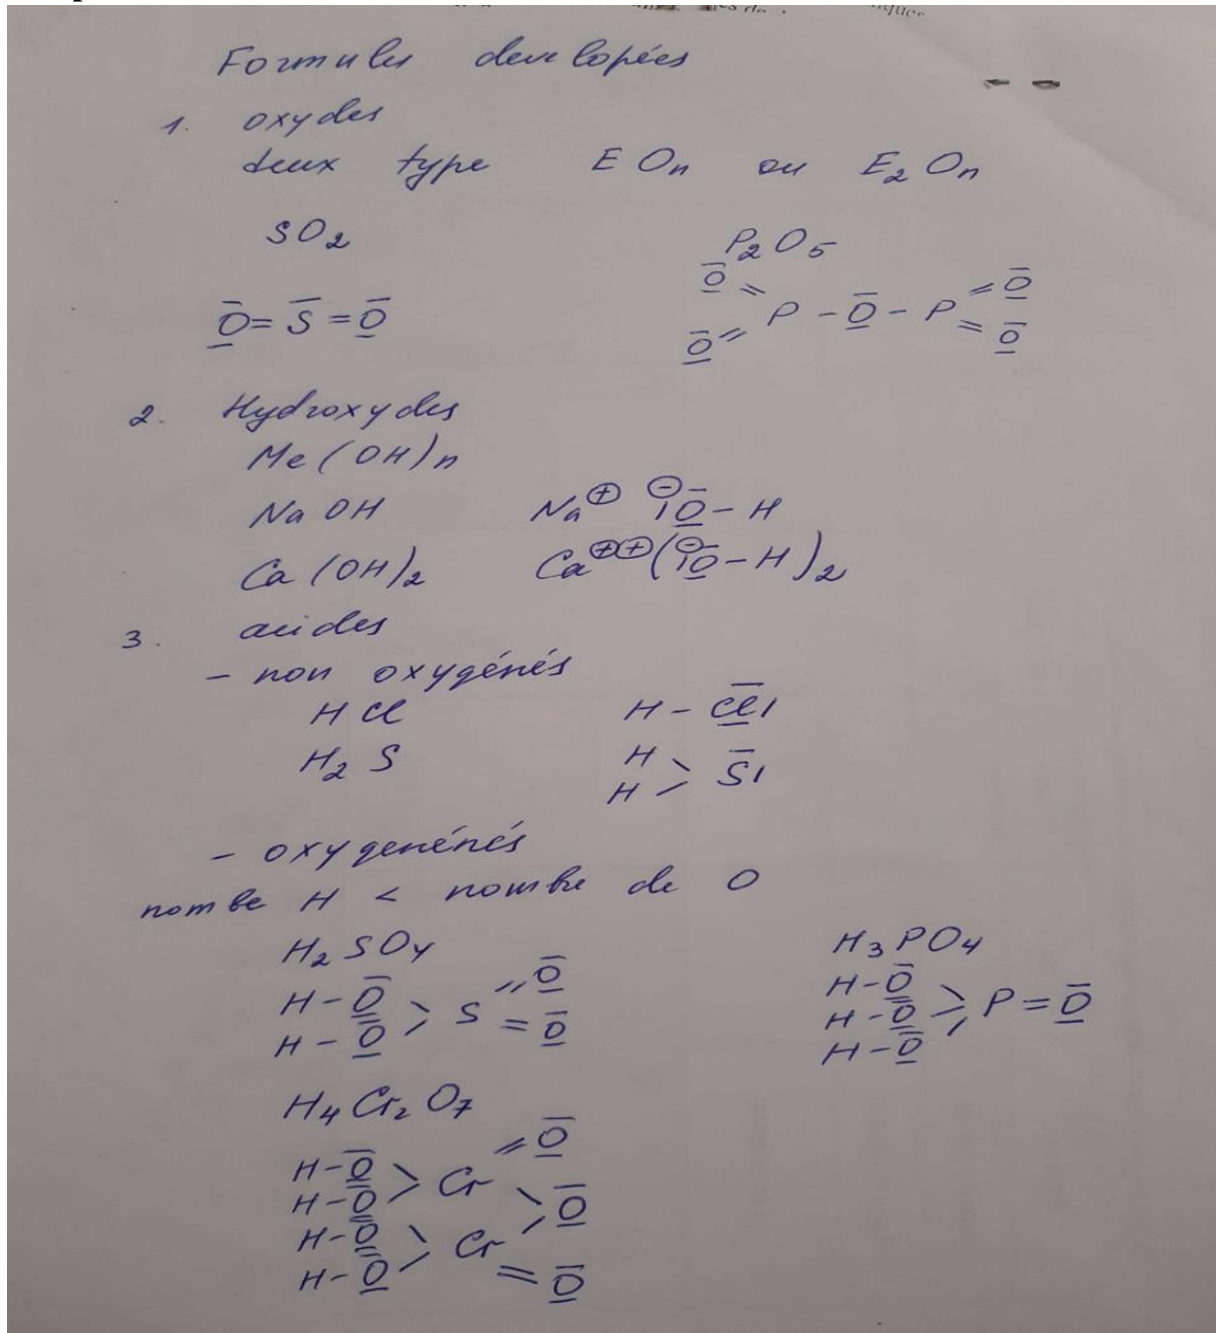 Formules developées
1. oxydes
deux type EOn ou E₂On
SO₂ P₂O₅
O = S = O
O = P - O - P = O
O = = O
2. Hydroxydes
Me(OH)n
NaOH Na⊕ ⊖|O - H
Ca(OH)₂ Ca⊕⊕(⊖|O - H)₂
3. acides
- non oxygénés
HCl H - Cl|
H₂S H > S|
H
- oxygenénés
nombe H < nombre de O
H₂SO₄ H₃PO₄
H - O > S = O H - O > P = O
H - O = O H - O
H - O
H₄Cr₂O₇
= O
H - O > Cr
H - O > O
H - O > Cr
H - O = O